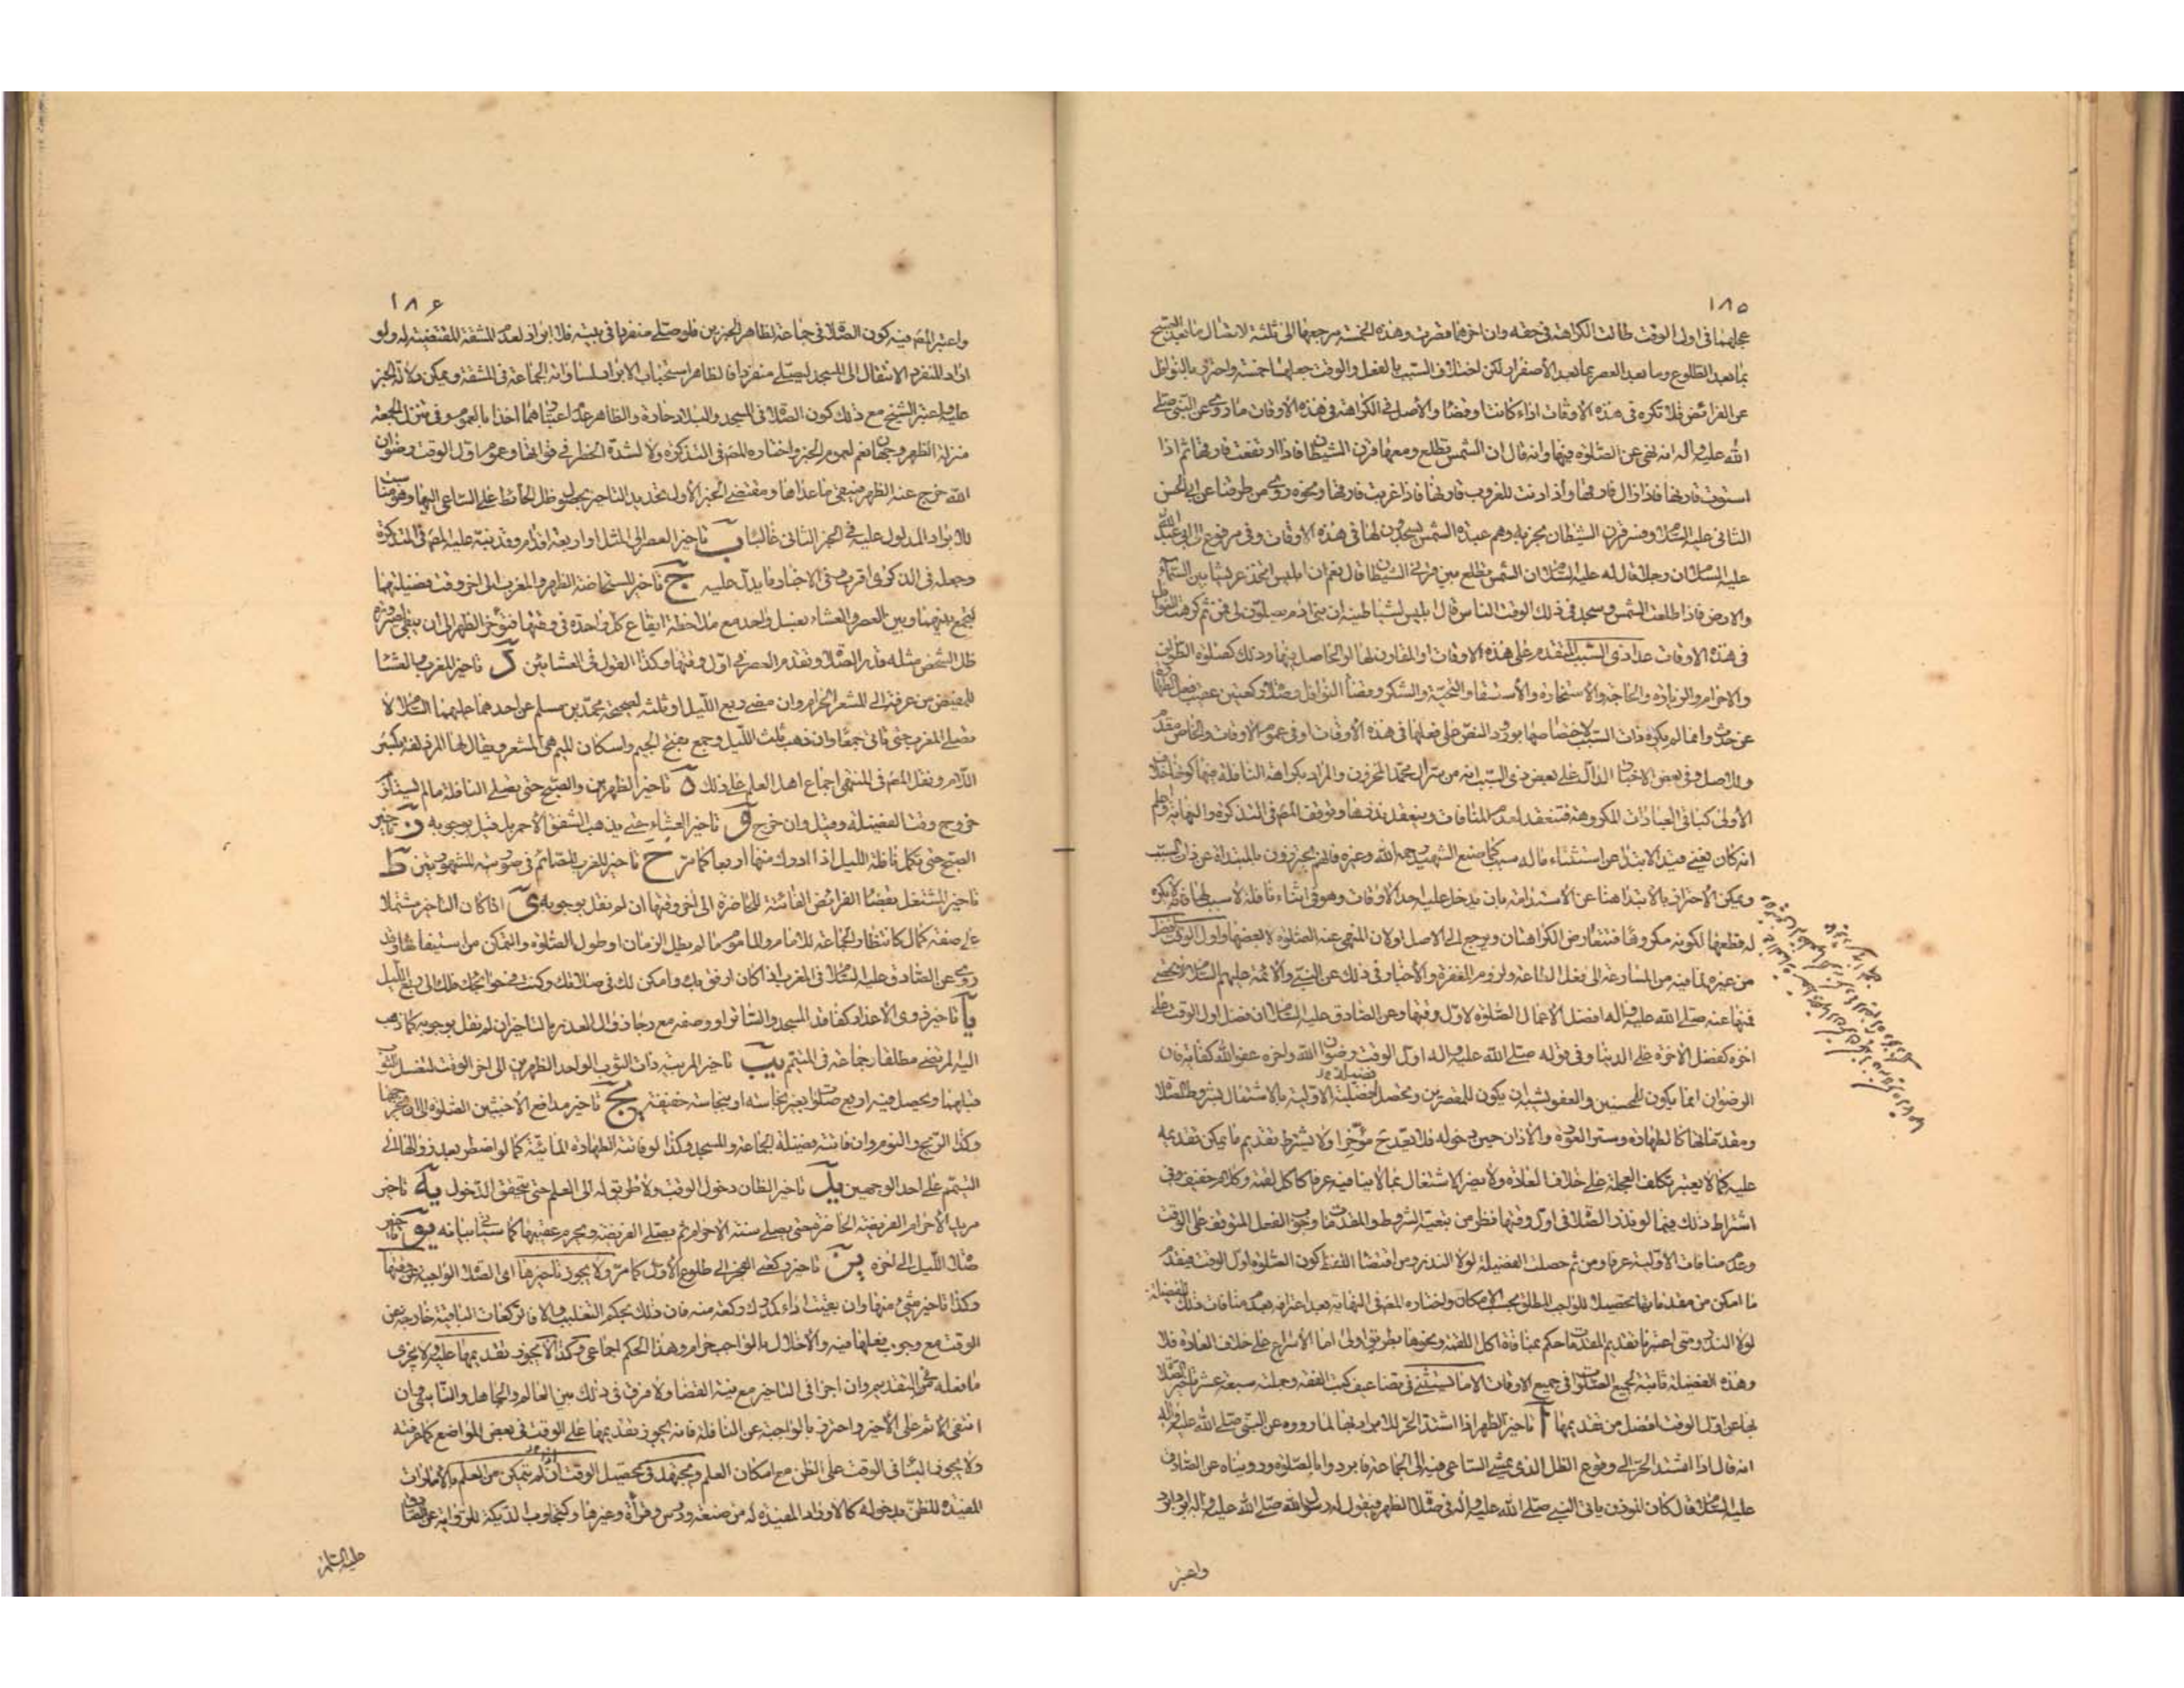 ١٨٥
عجلهما فى اول الوقت طالت الكراهة فى حقه وان اخرهما قصرت وهذه الخمسة مرجعها الى ثلثة لاتصال ما بعد الصبح
بما بعد الطلوع وما بعد العصر بما بعد الأصفرار لكن اختلاف السبب بالفعل والوقت جعلها خمسة واحترز بالنوافل
عن الفرائض فلا تكره فى هذه الأوقات اداء كانت او قضاء والأصل فى الكراهة فى هذه الاوقات ما روى عن النبى صلى
الله عليه وآله انه نهى عن الصلوة فيها وانه قال ان الشمس تطلع ومعها قرن الشيطان فاذا ارتفعت فارقها ثم اذا
استوت قارنها فاذا زال فارقها واذا دنت للغروب قارنها فاذا غربت فارقها ونحوه روى من طرقنا عن ابى الحسن
الثانى عليه السلام وفسر قرن الشيطان بحزبه وهم عبدة الشمس يسجدون لها فى هذه الاوقات وفى مرفوع الى ابى عبد الله
عليه السلام ان رجلا قال له عليه السلام ان الشمس تطلع بين قرنى الشيطان قال نعم ان ابليس اتخذ عريشا بين السماء
والارض فاذا طلعت الشمس وسجد فى ذلك الوقت الناس قال ابليس لشياطينه ان بنى ادم يصلون لى فمن ثم كرهت النوافل
فى هذه الاوقات عدا ذى السبب المتقدم على هذه الاوقات او المقارن لها او الحاصل فيها وذلك كصلوة الطواف
والاحرام والزيارة والحاجة والاستخارة والأستسقاء والتحية والشكر وقضاء النوافل وصلاة ركعتين عقيب فعل الطهارة
عن حدث وانما لم يكره ذات السبب لاختصاصها بورود النص على فعلها فى هذه الأوقات او فى عموم الاوقات والخاص مقدم
وللاصل وفى بعض الاخبار الدال على بعض ذى السبب انه من سر ال محمد المخزون والمراد بكراهة النافلة فيها كونها خلاف
الأولى كباقى العبادات المكروهة فتنعقد لعدم المنافات وينعقد نذرها وتوقف المص فى التذكرة والنهاية واعلم
انه كان ينبغى قيد الابتداء عن استثناء ماله سبب كما صنع الشهيد رحمه الله وغيره فانهم يحترزون بالمبتداة عن ذات السبب
ويمكن الأحتراز بالابتداء هنا عن الاستدامة بان يدخل عليه احد الأوقات وهو فى اثناء نافلة لا سبب لها فانه لا يكره
له قطعها لكونه مكروها فتتعارض الكراهتان ويرجع الى الاصل ولان المنهى عنه الصلوة لا بعضها واول الوقت افضل
من غيره لما فيه من المسارعة الى فعل الطاعة ولزوم المغفرة والأخبار فى ذلك عن النبى والأئمة عليهم السلام لا تحصى
فمنها عنه صلى الله عليه وآله افضل الأعمال الصلوة لاول وقتها وعن الصادق عليه السلام ان فضل اول الوقت على
اخره كفضل الآخرة على الدنيا وفى قوله صلى الله عليه واله اول الوقت رضوان الله واخره عفو الله كفاية فان
الرضوان انما يكون للمحسنين والعفو يشبه ان يكون للمقصرين وتحصل فضيلة الأولية بالاشتغال بشروط الصلاة
ومقدماتها كالطهارة وستر العورة والأذان حين دخوله فلا يعد ح مؤخرا ولا يشترط تقديم ما يمكن تقديمه
عليه كما لا يعتبر تكلف العجلة على خلاف العادة ولا يضر الاشتغال بما لا ينافيه عرفا كاكل لقمة وكلام خفيف وفى
اشتراط ذلك فيما لو نذر الصلاة فى اول وقتها نظر من تبعية الشروط والمقدمات لها وجوب الفعل الموقف على الوقت
وعدم منافات الاولية عرفا ومن ثم حصلت الفضيلة لولا النذر ومن اقتضاء اللفظ كون الصلوة اول الوقت فيقدم
ما امكن من مقدماتها تحصيلا للواجب المطلق بحسب الامكان واختاره المص فى النهاية بعد اعترافه بعدم منافات ذلك الفضيلة
لولا النذر ومتى اعتبرنا تقديم المقدمات حكم بمنافاة اكل اللقمة ونحوها بطريق اولى اما الأسراع على خلاف العادة فلا
وهذه الفضيلة ثابتة لجميع الصلوات فى جميع الاوقات الا ما يستثنى فى تضاعيف كتب الفقه وجملته سبعة عشر تأخير الصلاة
بها عن اول الوقت افضل من تقديمها آ تاخير الظهر اذا اشتد الحر للابراد بها لما رووه عن النبى صلى الله عليه وآله
انه قال اذا اشتد الحر الى وقوع الظل الذى يمشى الساعى فيه الى الجماعة فابردوا بالصلوة وروينا عن الصادق
عليه السلام قال كان المؤذن ياتى النبى صلى الله عليه وآله فى صلاة الظهر فيقول له رسول الله صلى الله عليه وآله ابرد ابرد
واعتبر
١٨۶
واعتبر المص فيه كون الصلاة فى جماعة لظاهر الخبرين فلو صلى منفردا فى بيته فلا ابراد لعدم المشقة المقتضية له ولو
اراد المنفرد الانتقال الى المسجد ليصلى منفردا فالظاهر استحباب الابراد لمساواته الجماعة فى المشقة ويمكن دلالة الخبر
عليه واعتبر الشيخ مع ذلك كون الصلاة فى المسجد والبلاد حارة والظاهر عدم اعتبارهما اخذا بالعموم وفى تنزل الجمعة
منزلة الظهر وجهان نعم لعموم الخبر واختاره المص فى التذكرة ولا لشدة الخطر فى فواتها وعموم اول الوقت رضوان
الله خرج عنه الظهر فيبقى ما عداها ومقتضى الخبر الأول تحديد التاخير بحصول ظل الحائط على الساعى اليها وهو مناسب
للابراد المدلول عليه فى الخبر الثانى غالبا ب تاخير العصر الى المثل او اربعة اقدام وقد نبه عليه المص فى التذكرة
وجعله فى الذكرى اقرب وفى الاخبار ما يدل عليه ج تاخير المستحاضة الظهر والمغرب الى اخر وقت فضيلتهما
لتجمع بينهما وبين العصر والعشاء بغسل واحد مع ملاحظة ايقاع كل واحدة فى وقتها فتؤخر الظهر الى ان يبقى لصيرورة
ظل الشخص مثله قدر الصلاة وتقدم العصر فى اول وقتها وكذا القول فى العشائين د تاخير المغرب والعشاء
للمفيض من عرفة الى المشعر الحرام وان مضى ربع الليل او ثلثه لصحيحة محمد بن مسلم عن احدهما عليهما السلام لا
تصلى المغرب حتى تاتى جمعا وان ذهب ثلث الليل وجمع بفتح الجيم واسكان الميم هى المشعر ويقال لها المزدلفة بكسر
اللام ونقل المص فى المنتهى اجماع اهل العلم على ذلك ه تاخير الظهرين والصبح حتى يصلى النافلة ما لم يستلزم
خروج وقت الفضيلة وقيل وان خرج و تاخير العشاء حتى يذهب الشفق الأحمر بل قيل بوجوبه ز تاخير
الصبح حتى تكمل نافلة الليل اذا ادرك منها اربعا كما مر ح تاخير المغرب للصائم فى صورتيه المشهورتين ط
تاخير المشتغل بقضاء الفرائض الفائتة للحاضرة الى اخر وقتها ان لم نقل بوجوبه ى اذا كان التاخير مشتملا
على صفة كمال كانتظار الجماعة للامام والماموم ما لم يطل الزمان او طول الصلوة والتمكن من استيفائها وقد
روى عن الصادق عليه السلام فى المغرب اذا كان ارفق بك وامكن لك فى صلاتك وكنت فى حوائجك فلك الى ربع الليل
يا تاخير ذوى الأعذار كفاقد المسجد والساتر او وصفه مع رجاء زوال العذر بالتاخير ان لم نقل بوجوبه كما ذهب
اليه المرتضى مطلقا وجماعة فى المتيمم يب تاخير المربية ذات الثوب الواحد الظهرين الى اخر الوقت لتغسل الثوب
قبلهما ويحصل فيه اربع صلوات بغير نجاسة او بنجاسة خفيفة يج تاخير مدافع الأخبثين الصلوة الى ان يخرجهما
وكذا الريح والنوم وان فاتته فضيلة الجماعة والمسجد وكذا لو فاتته الطهارة المائية كما لو اضطر بعد زوالها الى
التيمم على احد الوجهين يد تاخير الظان دخول الوقت ولا طريق له الى العلم حتى يتحقق الدخول يه تاخير
مريد الأحرام الفريضة الحاضرة حتى يصلى سنة الاحرام ثم يصلى الفريضة ويحرم عقيبها كما سياتى بيانه يو تاخير
صلاة الليل الى اخره يز تاخير ركعتى الفجر الى طلوع الأول كما مر ولا يجوز تاخيرها اى الصلاة الواجبة عن وقتها
وكذا تاخير شئ منها وان بقيت اداء كدرك ركعة منه فان ذلك بحكم التغليب والا فالركعات الباقية خارجة عن
الوقت مع وجوب فعلها فيه والأخلال بالواجب حرام وهذا الحكم اجماعى وكذا لا يجوز تقديمها عليه ولا يجزى
ما فعله فى التقديم وان اجزا فى التاخير مع نية القضاء ولا فرق فى ذلك بين العالم والجاهل والناسى وان
انتفى الاثم على الأخير واحترز بالواجبة عن النافلة فانه يجوز تقديمها على الوقت فى بعض المواضع كما عرفته
ولا يجوز البناء فى الوقت على الظن مع امكان العلم ويجتهد فى تحصيل الوقت ان لم يتمكن من العلم بالأمارات
المفيدة للظن بدخوله كالاوراد المفيدة له من صنعة ودرس وقراءة وغيرها وكتجاوب الديكة للرواية عن الصادق
عليه السلام